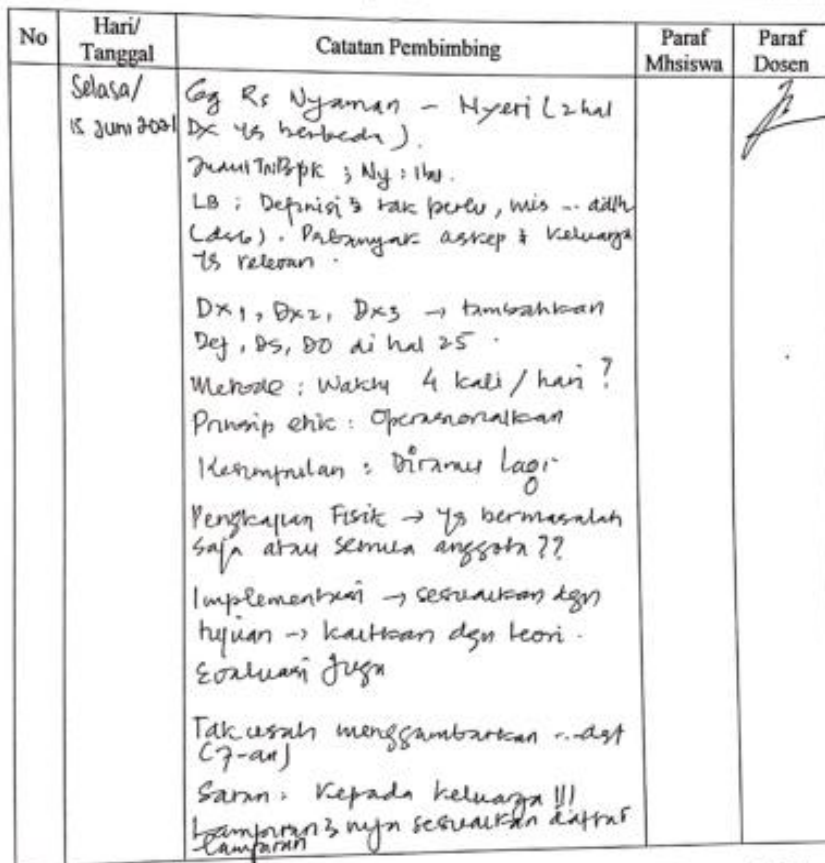 No
Hari/
Tanggal
Catatan Pembimbing
Paraf
Mhsiswa
Paraf
Dosen
Selasa/
15 Juni 2021
Gg Rs Nyaman - Nyeri (2 hal
Dx yg berbeda).
Judul Tn:Bpk ; Ny : Ibu.
LB : Definisi2 tak perlu, mis ... adlh
(dsb). Perbanyak askep & keluarga
yg relevan.
Dx1, Dx2, Dx3 → tambahkan
Def, DS, DO di hal 25.
Metode : Waktu 4 kali / hari ?
Prinsip etik : Operasionalkan
Kesimpulan : Diramu Lagi
Pengkajian Fisik → yg bermasalah
saja atau semua anggota ??
Implementasi → sesuaikan dgn
tujuan → kaitkan dgn teori.
Evaluasi juga
Tak usah menggambarkan ...dst
(7-an)
Saran : Kepada keluarga !!!
Lampiran2 nya sesuaikan daftar
lampiran